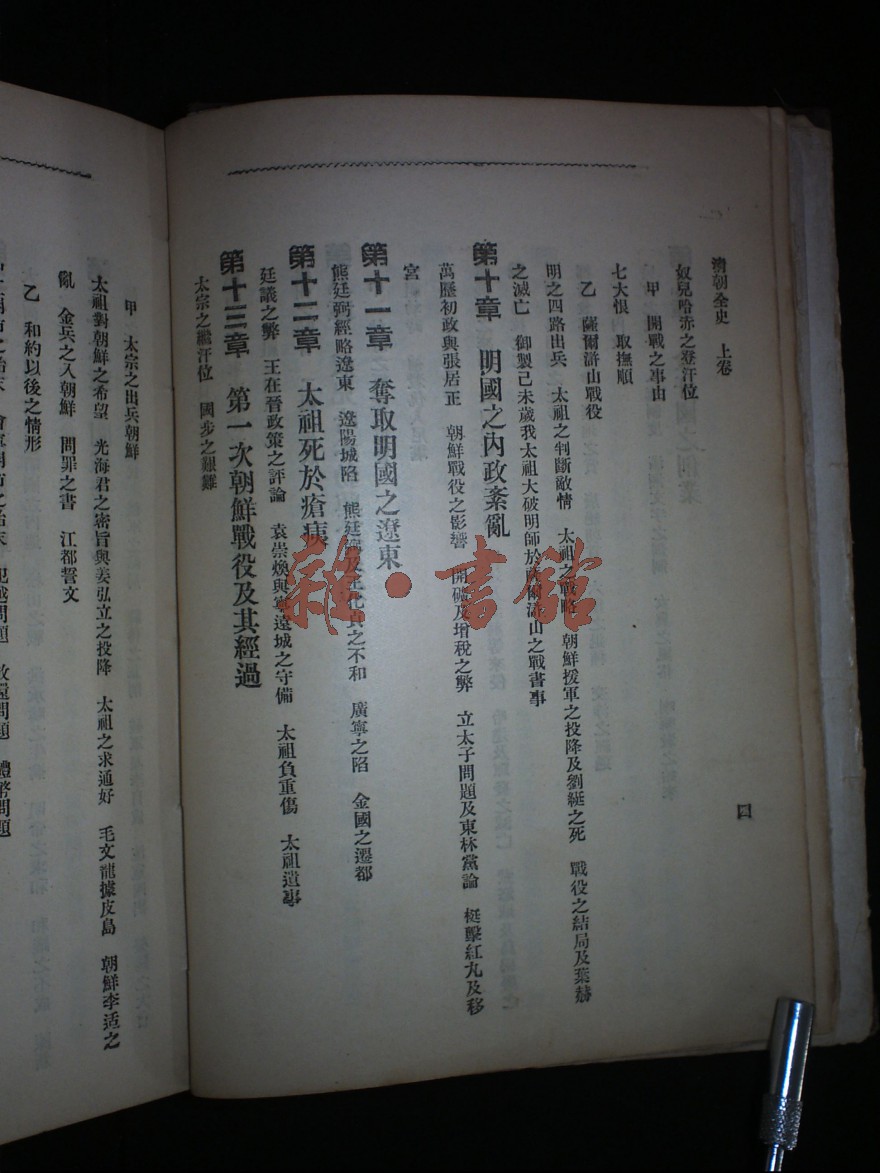 清朝全史　上卷
四
奴兒哈赤之登汗位
甲　開戰之事由
七大恨　取撫順
乙　薩爾滸山戰役
明之四路出兵　太祖之判斷敵情　太祖之戰略　朝鮮援軍之投降及劉綎之死　戰役之結局及葉赫
之滅亡　御製己未歲我太祖大破明師於薩爾滸山之戰書事
第十章　明國之內政紊亂
萬歷初政與張居正　朝鮮戰役之影響　開礦及增稅之弊　立太子問題及東林黨論　梃擊紅丸及移
宮
第十一章　奪取明國之遼東
熊廷弼經略遼東　遼陽城陷　熊廷弼及王化貞之不和　廣寧之陷　金國之遷都
第十二章　太祖死於瘡痍
廷議之弊　王在晉政策之評論　袁崇煥與寧遠城之守備　太祖負重傷　太祖遺事
第十三章　第一次朝鮮戰役及其經過
太宗之繼汗位　國步之艱難
甲　太宗之出兵朝鮮
太祖對朝鮮之希望　光海君之密旨與姜弘立之投降　太祖之求通好　毛文龍據皮島　朝鮮李适之
亂　金兵之入朝鮮　問罪之書　江都誓文
乙　和約以後之情形
雜·書館